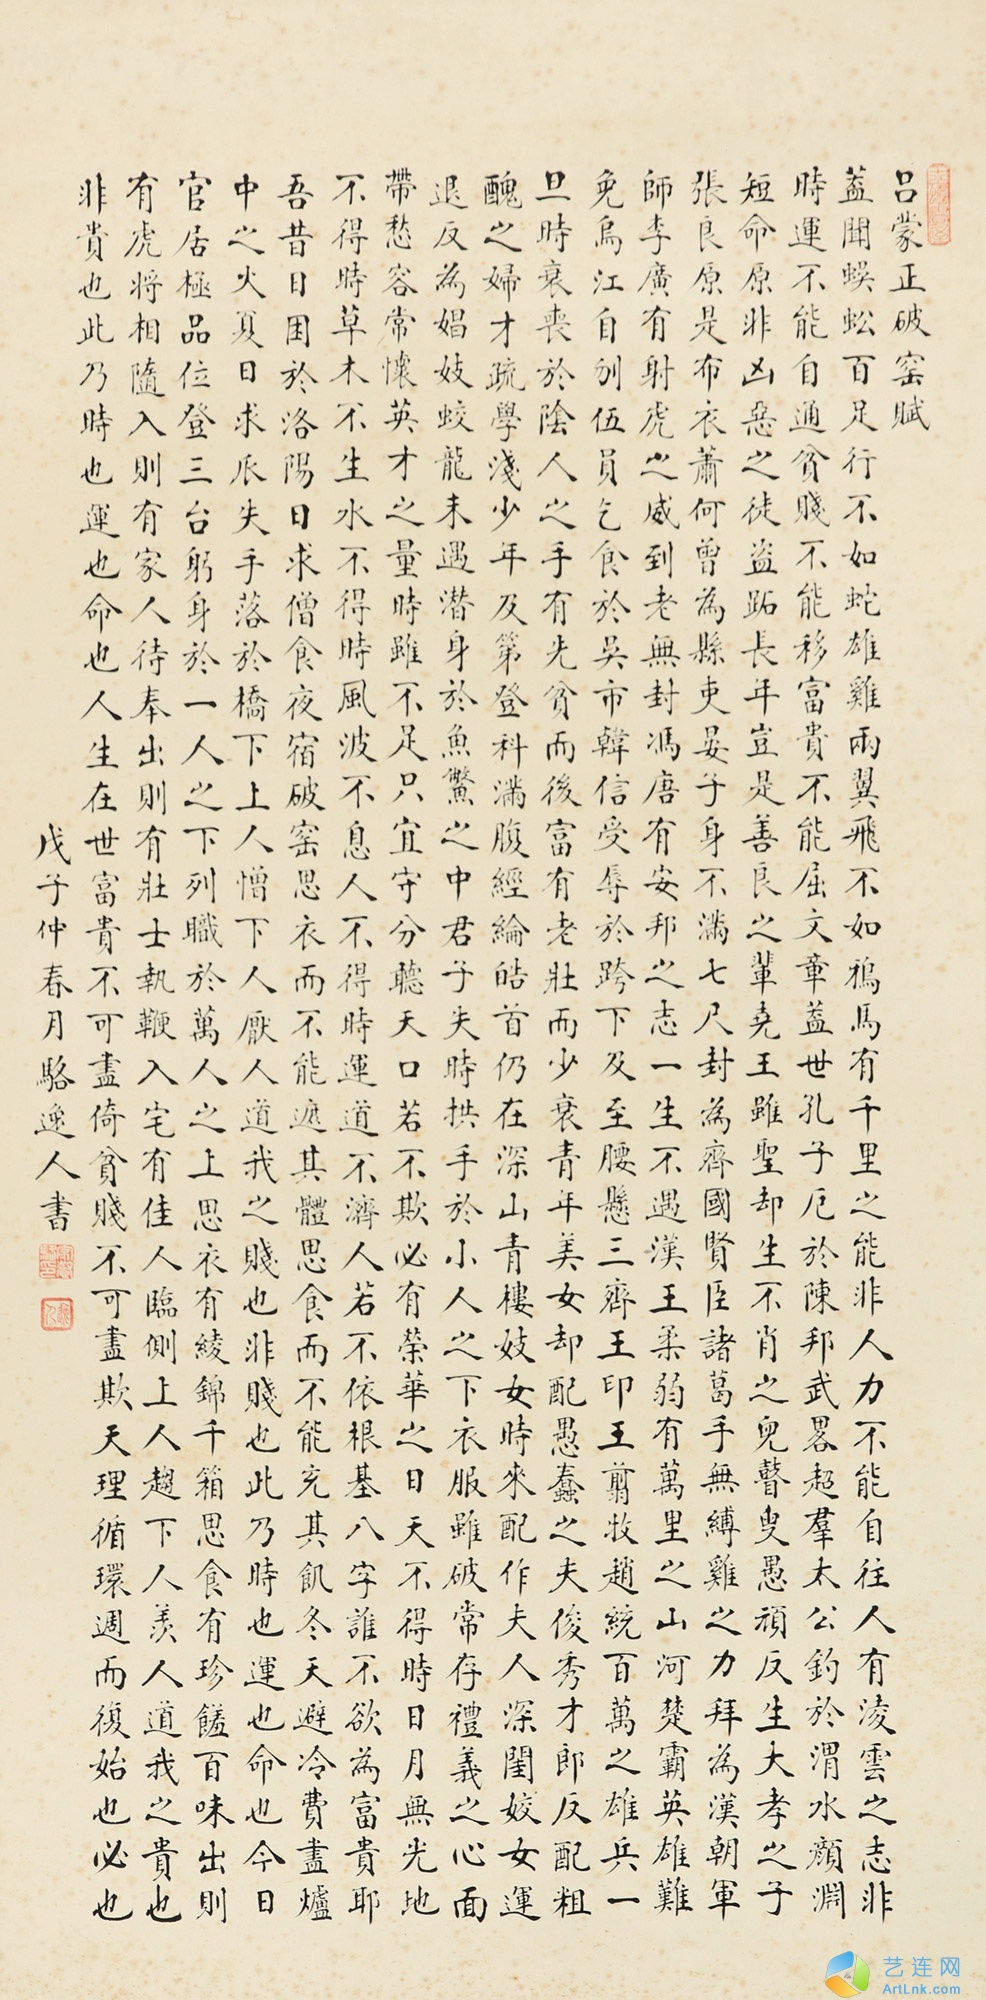 呂蒙正破窑賦
蓋聞蜈蚣百足行不如蛇雄雞兩翼飛不如鴉馬有千里之能非人力不能自往人有淩雲之志非
時運不能自通貧賤不能移富貴不能屈文章蓋世孔子厄於陳邦武畧超羣太公釣於渭水顏淵
短命原非凶惡之徒盜跖長年豈是善良之輩堯王雖聖却生不肖之兒瞽叟愚頑反生大孝之子
張良原是布衣蕭何曾為縣吏晏子身不滿七尺封為齊國賢臣諸葛手無縛雞之力拜為漢朝軍
師李廣有射虎之威到老無封馮唐有安邦之志一生不遇漢王柔弱有萬里之山河楚霸英雄難
免烏江自刎伍員乞食於吳市韓信受辱於跨下及至腰懸三齊王印王翦牧趙統百萬之雄兵一
旦時衰喪於陰人之手有先貧而後富有老壯而少衰青年美女却配愚蠢之夫俊秀才郎反配粗
醜之婦才疏學淺少年及第登科滿腹經綸皓首仍在深山青樓妓女時來配作夫人深閨姣女運
退反為娼妓蛟龍未遇潜身於魚鱉之中君子失時拱手於小人之下衣服雖破常存禮義之心面
帶愁容常懷英才之量時雖不足只宜守分聽天口若不欺必有榮華之日天不得時日月無光地
不得時草木不生水不得時風波不息人不得時運道不濟人若不依根基八字誰不欲為富貴耶
吾昔日困於洛陽日求僧食夜宿破窑思衣而不能遮其體思食而不能充其飢冬天避冷費盡爐
中之火夏日求瓜失手落於橋下上人憎下人厭人道我之賤也非賤也此乃時也運也命也今日
官居極品位登三台躬身於一人之下列職於萬人之上思衣有綾錦千箱思食有珍饈百味出則
有虎將相隨入則有家人待奉出則有壯士執鞭入宅有佳人臨側上人趨下人羨人道我之貴也
非貴也此乃時也運也命也人生在世富貴不可盡倚貧賤不可盡欺天理循環週而復始也必也
戊子仲春月駱逸人書
艺连网
ArtLnk.com